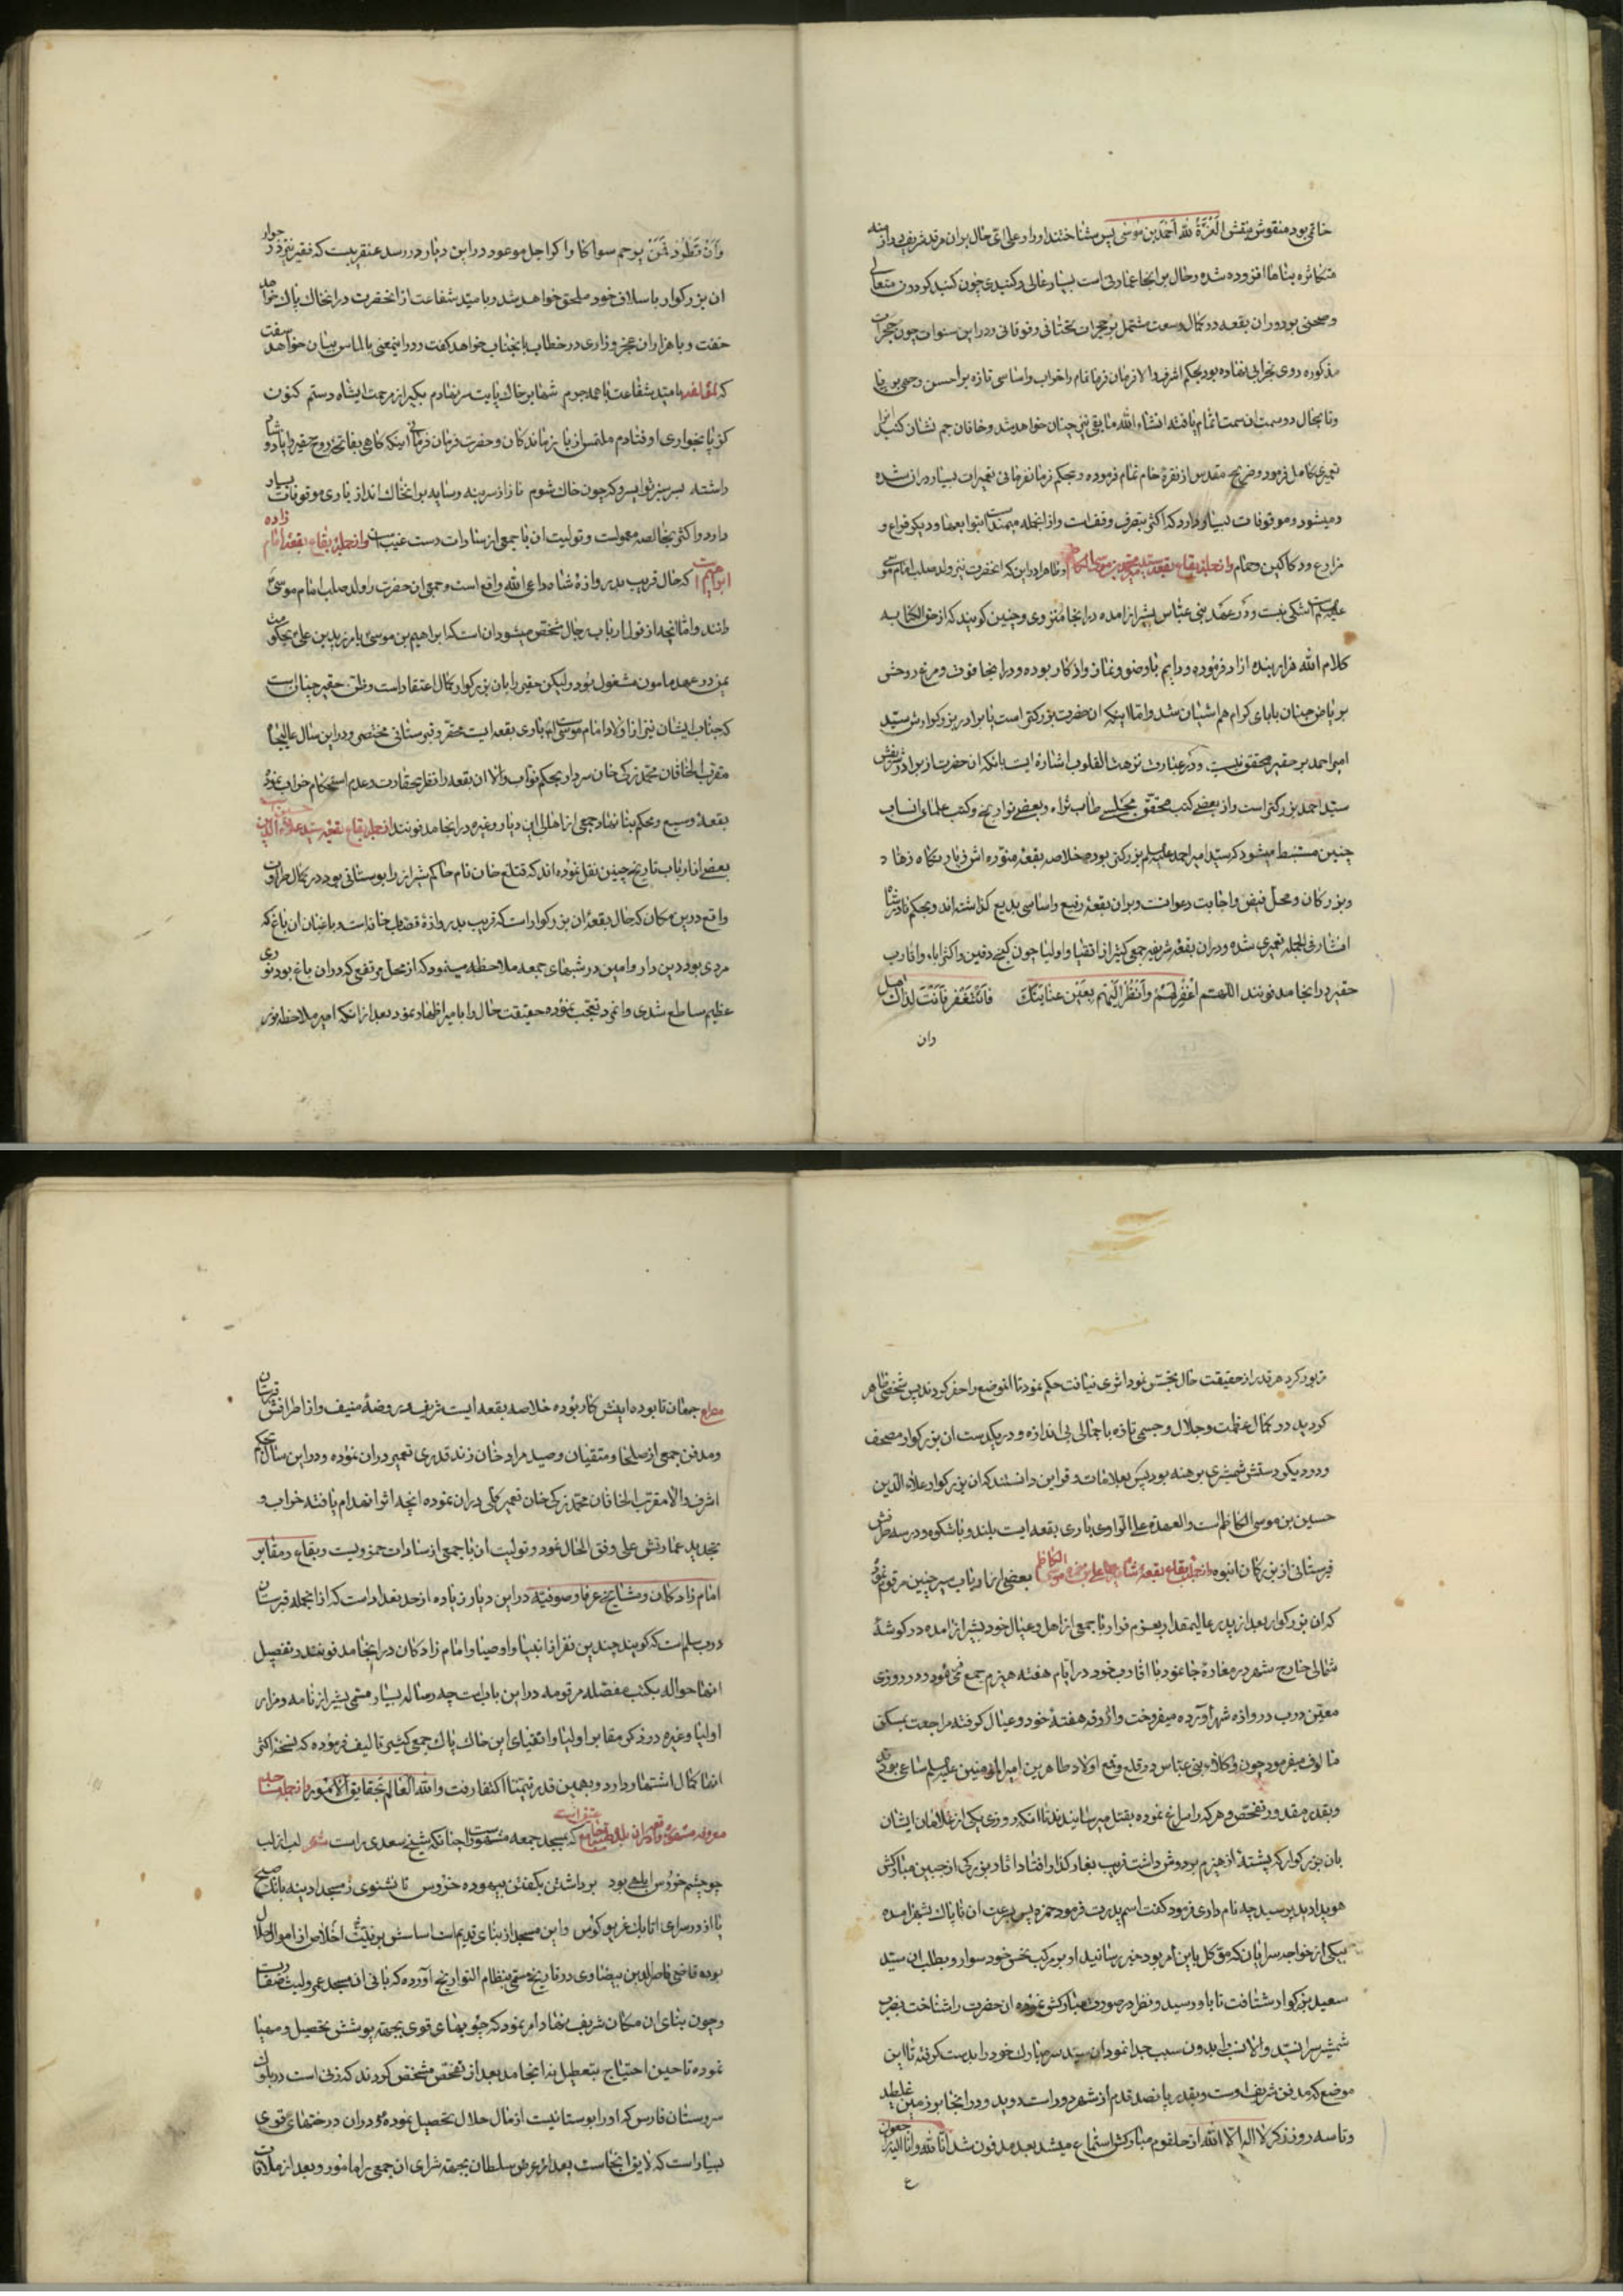 خاتمی بود منقوش بنقش العزة لله احمد بن موسی پس شناختند او را و علی ای حال بران مرقد شریف بی‌اند
متکاثره بناها افزوده شده و حال بر انجا عمارتی است بسیار عالی و کنبدی چون کنبد کردون متعالی
و صحنی بر دوران بقعه در کمال وسعت مشتمل بر حجرات تحتانی و فوقانی و در این سنوات چون حجرات
مذکوره روی بخرابی نهاده بود بحکم اشرف والا فرمان فرما تمام را خراب و اساسی تازه بر احسن وجهی بر پا
و تا بحال دو سمت ان سمت اتمام یافته انشاء الله مابقی نیز چنان خواهد شد و خاقان جم نشان کنبد انرا
تعمیری کامل فرمود و ضریح مقدس از نقره خام تمام فرموده و بحکم فرمانفرمائی تعمیرات بسیار دران شده
و میشود و موقوفات بسیار دارد که اکثر بتصرف وقف است و از انجمله میمند است با توابعها و دیکر قراء و
مزارع و دکاکین و حمام و از جمله بقاع بقعه سید میر محمد بن موسی الکاظم و ظاهرا در این که انحضرت نیز ولد صلب امام موسی
علیه السلم است شکی نیست و در عهد بنی عباس بشیراز امده در انجا منزوی و چنین کویند که از حق الکتابه
کلام الله هزار بنده ازاد فرموده و دایم با وضو و نماز و اذکار بوده و در انجا فوت و مرغ روحش
بر یاض جنان با بای کرام هم اشیان شد و اما اینکه ان حضرت بزرکتر است یا برادر بزرکوارش سید
امیر احمد بر حقیر محقق نیست و در عبارت نزهت القلوب اشاره ایت بانکه ان حضرت از برادر شریفش
سید احمد بزرکتر است و از بعضی کتب محقق مجلسی طاب ثراه و بعضی تواریخ و کتب علمای انساب
چنین مستنبط میشود که سید امیر احمد علیه السلم بزرکتر بوده خلاصه بقعه منوره اش زیارتکاه زهاد
و بزرکان و محل فیض و اجابت دعوات است و بران بقعه رفیع و اساسی بدیع کذاشته اند و بحکم نادر شاه
افشار فی الجمله تعمیری شده و دران بقعه شریفه جمعی کثیر از اتقیا و اولیا چون کنج دفین و اکثر اباء و اقارب
حقیر در انجا مدفونند اللهم اغفر لهم و انظر الیهم بعین عنایتک فان تغفر فانت لذاک اهل
وان
وان تطرد فمن یرحم سواکا و اکر اجل موعود در این دیار در رسد عنقریبست که فقیر نیز در جوار
ان بزرکوار با سلاف خود ملحق خواهد شد و بامید شفاعت از انحضرت در انخاک پاک خواهد
خفت و با هزاران عجز و زاری در خطاب با نجناب خواهد کفت و در اینمعنی بالماس بیان خواهد سفت
که لمؤلفه بامید شفاعت با همه جرم شها بر خاک پایت سر نهادم بکیر از مرحمت ایشاه دستم کنون
کز پا بخواری اوفتادم ملتمس از بازماندکان و حضرت فرمان فرمائی اینکه کاهی بفاتحه روح حقیر را یاد و شاد
داشته بسر سبز توایسرو که چون خاک شوم ناز از سر بنه و سایه بر انخاک انداز باری موقوفات بسیار
دارد و اکثر بخالصه معمولست و تولیت ان با جمعی از سادات دست غیب است و از جمله بقاع بقعه امام زاده
ابراهیم است که حال قریب بدروازه شاه داعی الله واقع است و جمعی ان حضرت را ولد صلب امام موسی
دانند و اما انچه از قول ارباب رجال مشخص میشود ان است که ابراهیم بن موسی با مر زید بن علی بحکومت
یمن در عهد مامون مشغول بود ولیکن حقیر را بان بزرکوار کمال اعتقاد است و ظن حقیر چنان است
که جناب ایشان نیز از اولاد امام موسی است باری بقعه ایست محقر و قبرستانی مختصر و در این سال عالیجاه
مقرب الخاقان محمد زکی خان سردار بحکم نواب والا ان بقعه را نظر بحقارت و عدم استحکام خراب نموده
بقعه وسیع و محکم بنا نهاد جمعی از اهالی این دیار و غیره در انجا مدفونند از جمله بقاع بقعه سید علاء الدین حسین است
بعضی از ارباب تاریخ چنین نقل نموده اند که قتلغ خان نام حاکم شیراز را بوستانی بود در کمال طراوت
واقع در ین مکان که حال بقعه ان بزرکوار است که قریب بدروازه قصابخانه است و باغبان ان باغ که
مردی بود دین دار و امین در شبهای جمعه ملاحظه مینمود که از محل مرتفعی که دران باغ بود نوری
عظیم ساطع شدی و انمرد تعجب نموده حقیقت حال را با میر اظهار نمود بعد از انکه امیر ملاحظه نور
مزبور کرد هر قدر از حقیقت حال تجسس نمود اثری نیافت حکم نمود تا انموضع را حفر کردند پس شخصی ظاهر
کردید در کمال عظمت و جلال و جسمی تازه با جمالی بی اندازه و در یکدست ان بزرکوار مصحف
و در دیکر دستش شمشیری برهنه بود پس بعلامات و قراین دانستند که ان بزرکوار علاء الدین
حسین بن موسی الکاظم است والعهدة علی الراوی باری بقعه ایست بلند و با شکوه و در سه طرفش
قبرستانی از بزرکان انبوه و از جمله بقاع بقعه شاه میر علی بن حمزه بن موسی الکاظم بعضی از ارباب سیر چنین مرقوم نموده
که ان بزرکوار بعد از پدر عالیمقدار بعزم فرار با جمعی از اهل و عیال خود بشیراز امده در کوشه
شمالی خارج شهر در مغاره جا نمود با اقارب خود در ایام هفته هیزم جمع می نمود و در روزی
معین درب دروازه شهر اورده میفروخت و اذوقه هفته خود و عیال کرفته مراجعت بمسکن
مالوف میفرمود چون وکلاء بنی عباس در قلع و قمع اولاد طاهرین امیر المومنین علیه السلم ساعی بودند
و بقدر مقدور تفحص و هر که را سراغ نموده بقتل میرسانیدند تا انکه روزی یکی از غلامان ایشان
بان بزرکوار که پشته از هیزم بر دوش داشت قریب بغار کذار افتاد اثار بزرکی از جبین مبارکش
هویدا دید پرسید چه نام داری فرمود کفت اسم پدرت فرمود حمزه پس بسرعت ان ناپاک بشهر امده
بیکی از خواجه سرایان که موکل باین امر بود خبر رسانید او بر مرکب نحس خود سوار و بطلب ان سید
سعید بزرکوار شتافت تا باو رسید و نظر در صورت مبارکش نموده ان حضرت را شناخت بضرب
شمشیر سر ان سید والا نسب را بدون سبب جدا نمود ان سید سر مبارک خود را بدست کرفته تا این
موضع که مدفن شریف اوست و بقدر پانصد قدم از شهر دور است دوید و در انجا بر زمین غلطید
و تا سه روز ذکر لا اله الا الله از حلقوم مبارکش استماع میشد بعد مدفون شد انا لله و انا الیه راجعون
ع
مصراع جهان تا بوده اینش کار بوده خلاصه بقعه ایست شریف و روضه منیف و از اطرافش قبرستان
و مدفن جمعی از صلحا و متقیان و صید مراد خان زند قدری تعمیر دران نموده و در این سال بحکم
اشرف والا مقرب الخاقان محمد زکی خان تعمیر کلی دران نموده انچه اثر انهدام یافته خراب و
تجدید عمارتش علی وفق الحال نمود و تولیت ان با جمعی از سادات حمزویست و بقاع و مقابر
امام زادکان و مشایخ و عرفا و صوفیه در این دیار زیاده از حد تعداد است که از انجمله قبرستان
درب سلم است که کویند چندین نفر از انبیا و اوصیا و امام زادکان در انجا مدفونند و تفصیل
انها حواله بکتب مفصله مرقومه در این باب است چه رساله بسیار مسمی بشیراز نامه و مزار
اولیا و غیره در ذکر مقابر اولیا و اتقیای این خاک پاک جمعی کثیر تالیف فرموده که نسخه اکثر
انها کمال اشتهار دارد و بهمین قدر تیمنا اکتفا رفت والله العالم بحقایق الامور و از جمله مساجد
معروفه مشهوره ان بلده جامع عتیق است که بمسجد جمعه مشهور است چنانکه شیخ سعدی راست شعر لب از لب
چو چشم خروس ابلهی بود برداشتن بکفتن بیهوده خروس تا نشنوی ز مسجد ادینه بانک صبح
یا از در سرای اتابک غریو کوس و این مسجد از بنای قدیم است اساسش بر نیت اخلاص از اموال حلال
بوده قاضی ناصر الدین بیضاوی در تاریخ مسمی بنظام التواریخ آورده که بانی ان مسجد عمرو لیث صفار است
و چون بنای ان مکان شریف نهاد امر نمود که چوبهای قوی بجهته پوشش تحصیل و مهیا
نموده تا حین احتیاج بتعطیل نه انجامد بعد از تفحص مشخص کردند که زنی است در بلوک
سروستان فارس که او را بوستانیست از مال حلال تحصیل نموده و دران درختهای قوی
بسیار است که لایق انجاست بعد از عرض سلطان بجهته شرای ان جمعی را مامور و بعد از ملاقات